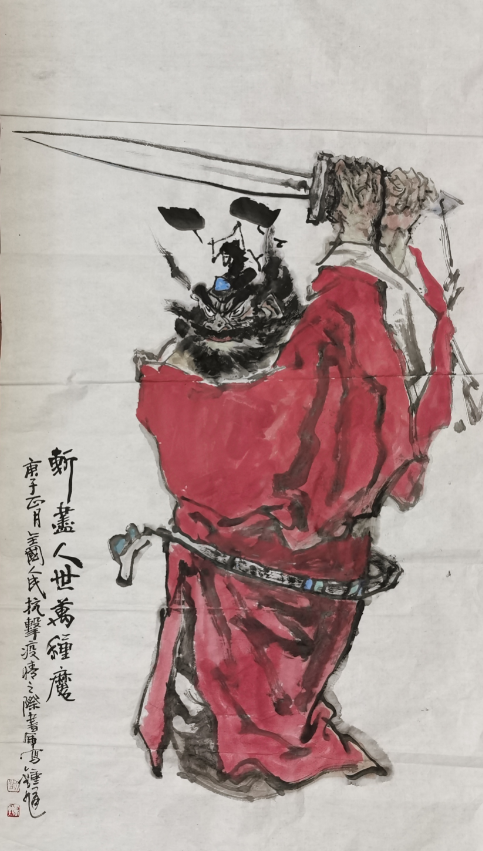 斬盡人世萬種魔
庚子正月全國人民抗擊疫情之際書軍寫鍾馗